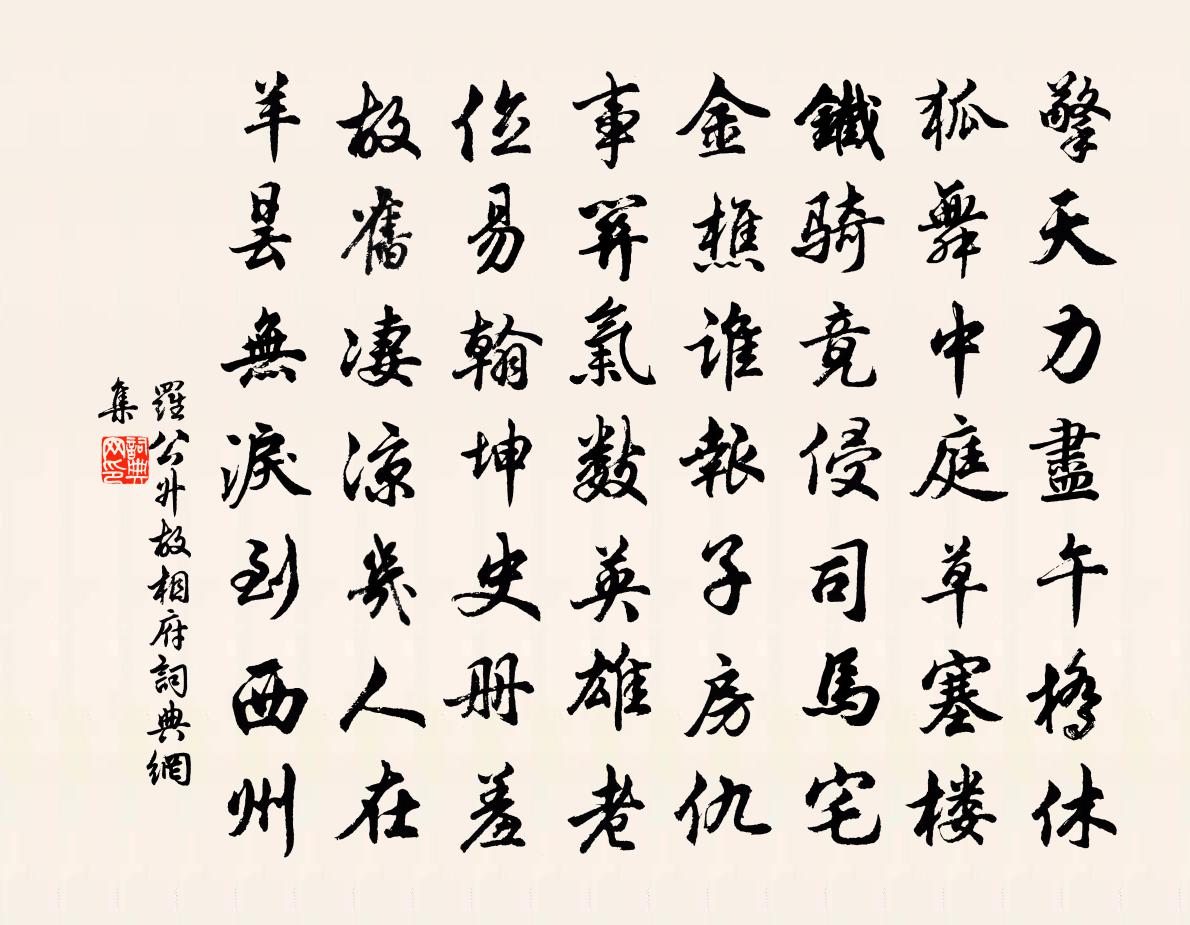 擎天力盡午橋休
狐舞中庭草塞楼
鐵騎竟侵司馬宅
金樵誰報子房仇
事関氣數英雄老
位易翰坤史册羞
故舊凄凉幾人在
羊曇無淚到西州
羅公升故相府詞典網
集
詞典網印